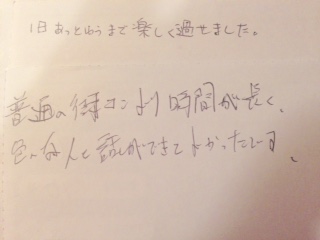 1日あっとゆうまで楽しく過せました。
普通の街コンより時間が長く、
色々な人と話しができてよかったです。